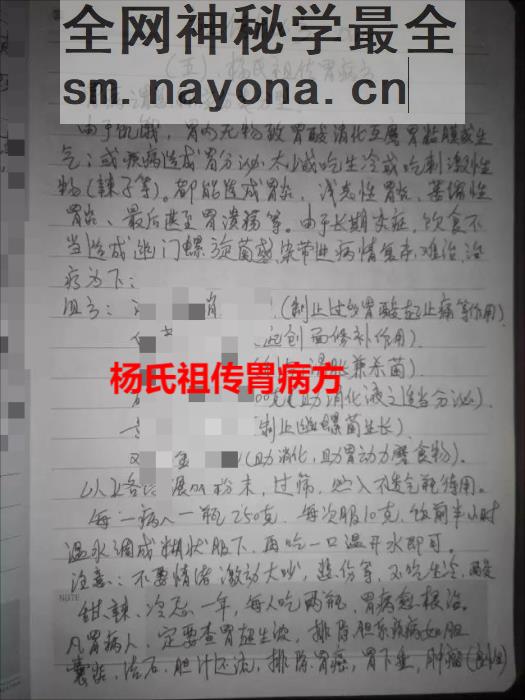 全网神秘学最全
sm.nayona.cn
(五)、杨氏祖传胃病方
由于饥饿,胃内无物致胃酸消化互磨胃黏膜或生
气;或疾病造成胃分泌太少或吃生冷或吃刺激性
物(辣子等)。都能造成胃炎,浅表性胃炎,萎缩性
胃炎、最后甚至胃溃疡等。由于长期炎症,饮食不
当造成幽门螺旋菌感染带进病情复杂,难治,治
疗为下:
(制止过多胃酸起止痛等作用)
起创面修补作用).
兼杀菌)
杨氏祖传胃病方
助消化液之适当分泌).
制止幽螺菌生长)
(助消化,助胃动力磨食物).
以上各 粉末,过筛,然入不透气瓶待用。
每一病人一瓶250克.每次服10克,饭前半小时
温水调成糊状服下,再吃一口温开水即可。
注意:不要情绪激动大吵,悲伤等,不吃生冷,
甜,辣、冷忌一年,每人吃两瓶,胃病愈根治。
NOTE
凡胃病人,定要查胃超生波,排除胆系疾病如胆
囊炎,结石,胆汁还流,排除胃癌,胃下垂,肿瘤